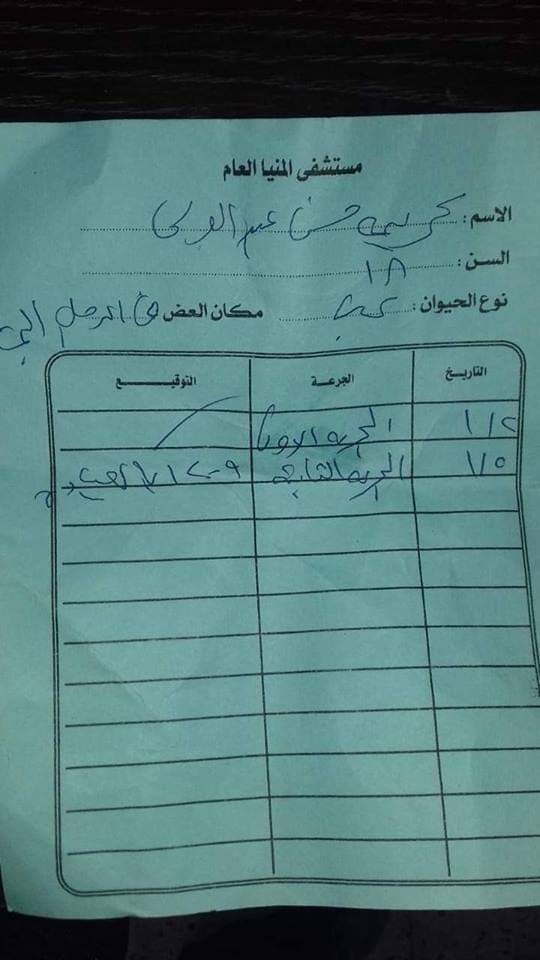 مستشفى المنيا العام
الاسم: كريم حسن عبد
السن: ١٨
نوع الحيوان: كلب مكان العض: في الرجل
التاريخ الجرعة التوقيع
١/٢ الجرعة الاولى
١/٥ الجرعة الثانية